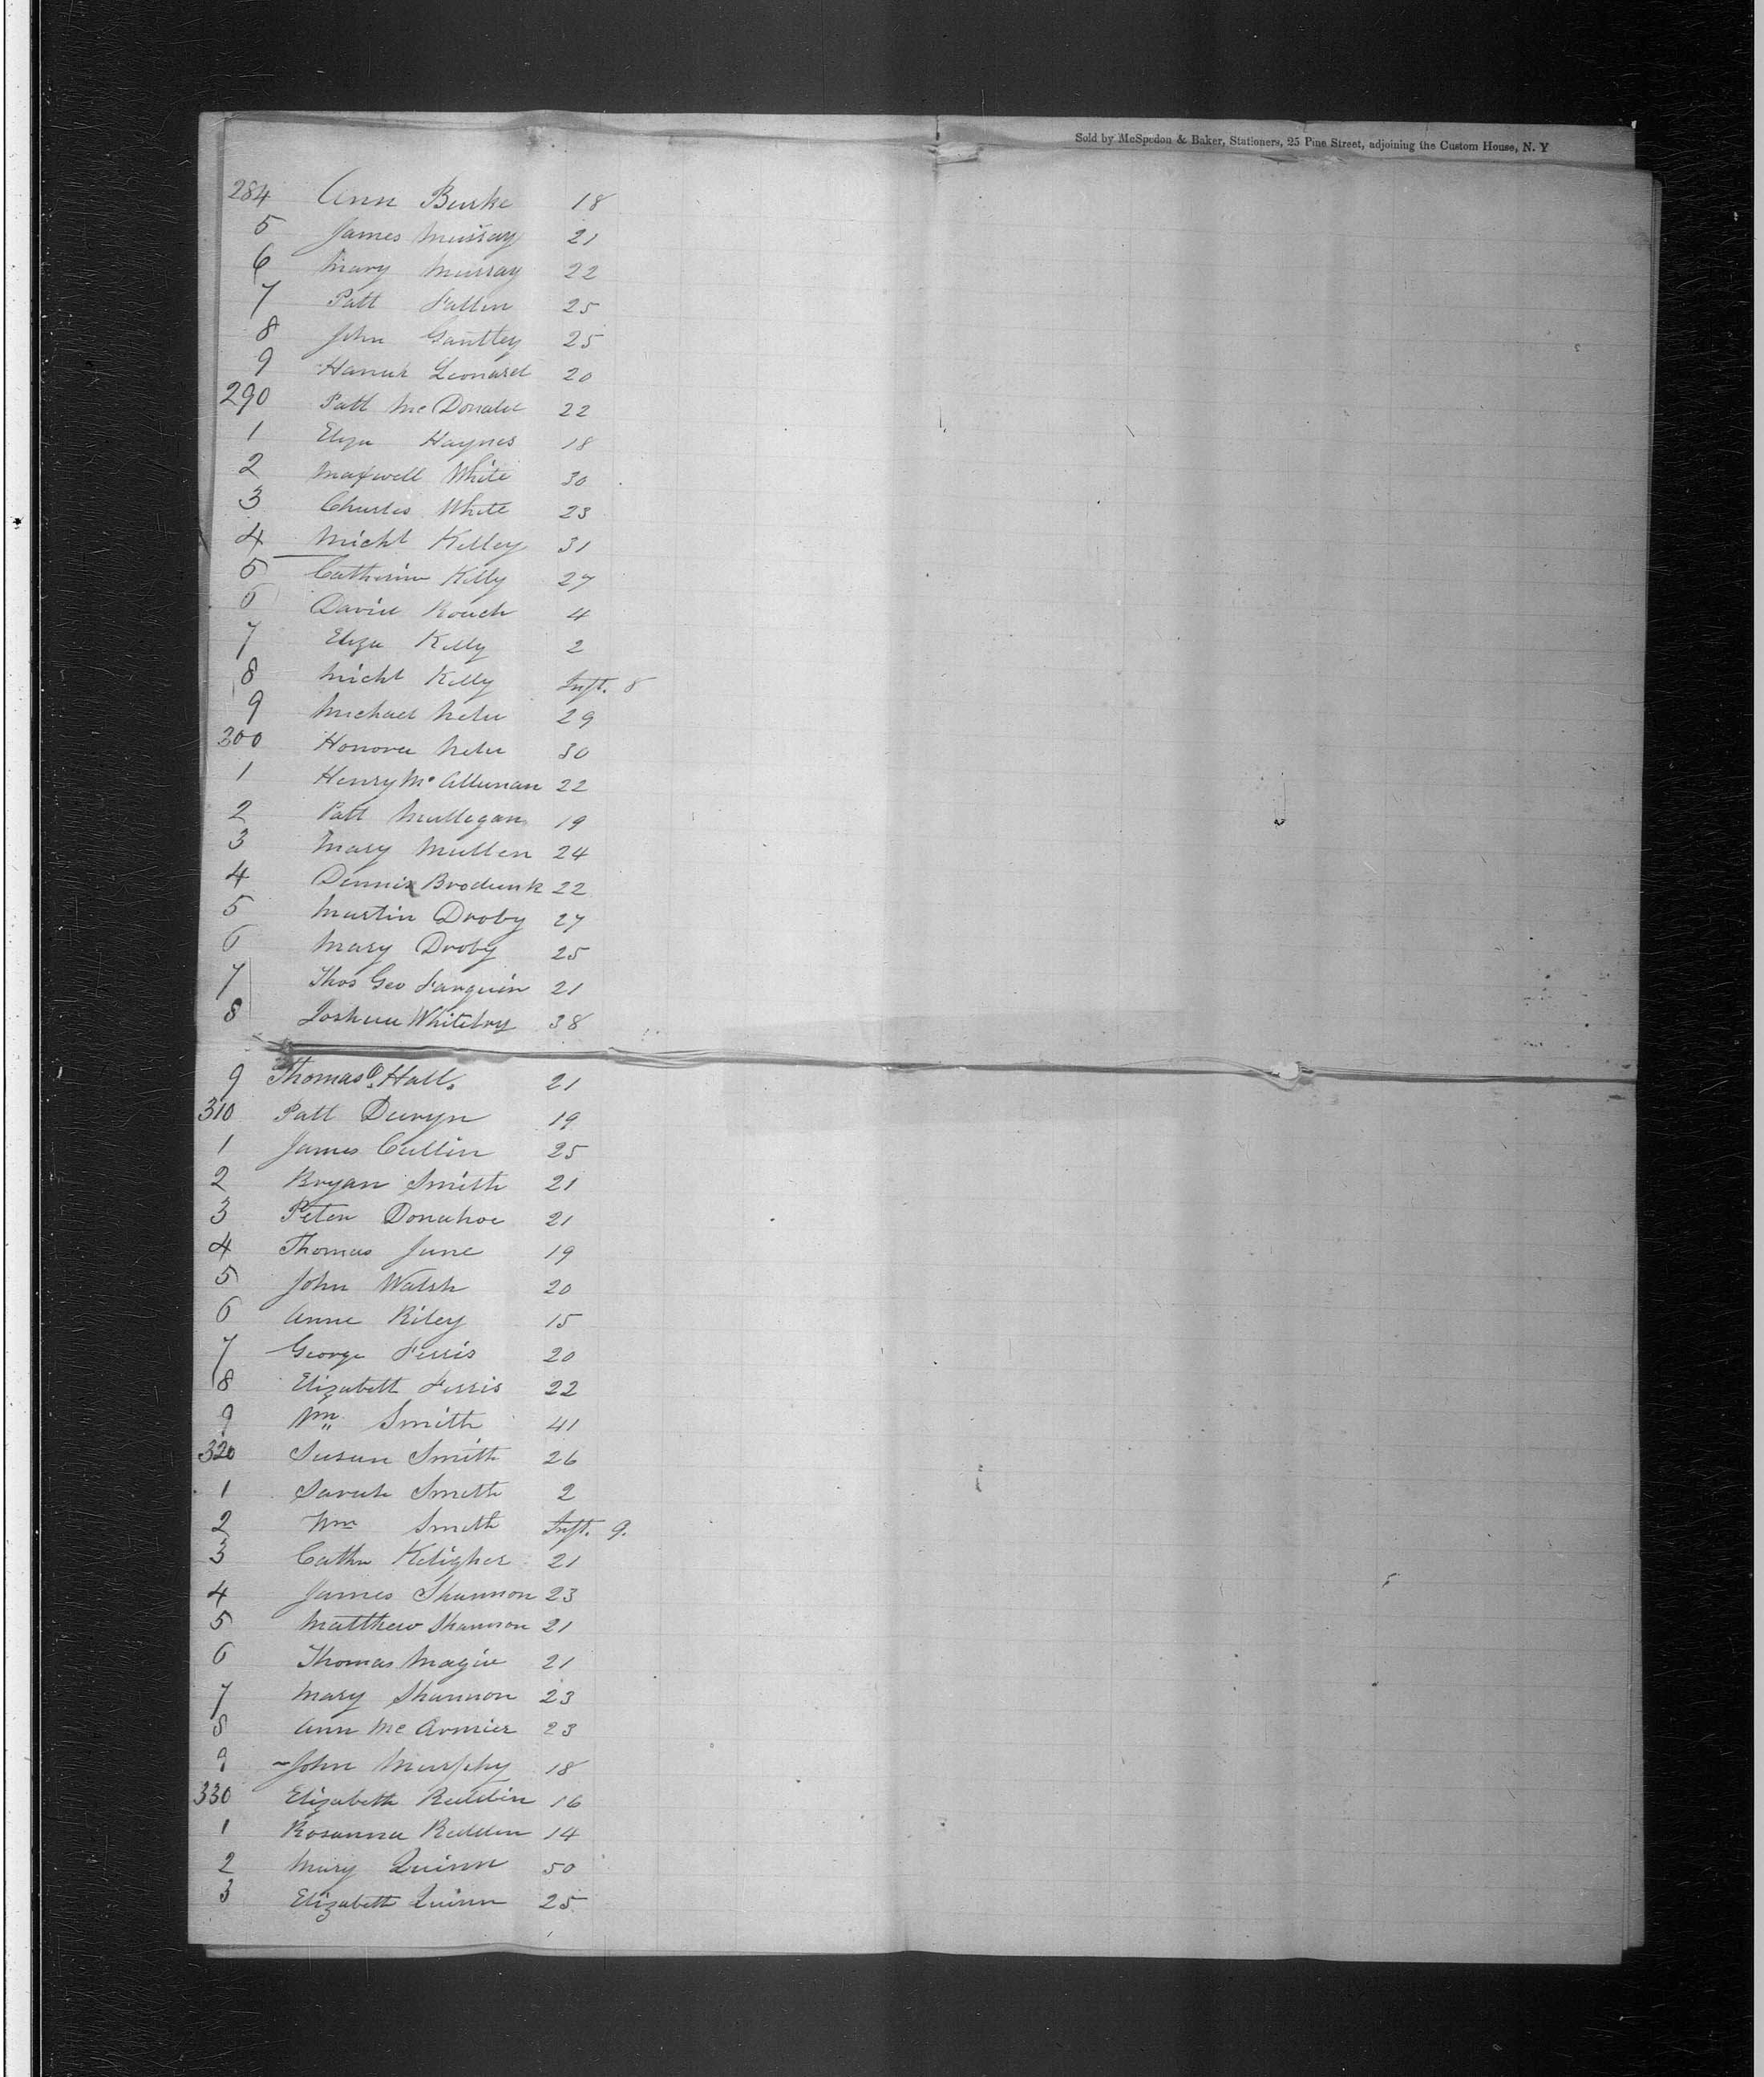 Sold by McSpedon & Baker, Stationers, 25 Pine Street, adjoining the Custom House, N. Y
284 Ann Burke 18
5 James Murray 21
6 Mary Murray 22
7 Patt Fallen 25
8 John Gauttey 25
9 Hanah Leonard 20
290 Patt McDonald 22
1 Eliza Haynes 18
2 Maxwell White 30
3 Charles White 23
4 Michl Kelley 31
5 Catherine Kelly 27
6 David Rouch 4
7 Eliza Kelly 2
8 Michl Kelly Inft. 8
9 Michael 29
300 Honora 30
1 Henry Mc 22
2 Patt Mullegan 19
3 Mary Mullen 24
4 Dennis 22
5 Martin Droby 27
6 Mary Droby 25
7 Thos Geo Farquin 21
8 Joshua Whitelry 38
9 Thomas Hall 21
310 Patt Duryn 19
1 James Cullin 25
2 Bryan Smith 21
3 Peter Donahoe 21
4 Thomas June 19
5 John Walsh 20
6 Anne Riley 15
7 George Ferris 20
8 Elizabeth Ferris 22
9 Wm Smith 41
320 Susan Smith 26
1 Sarah Smith 2
2 Wm Smith Inft. 9.
3 Cathe Keligher 21
4 James Shannon 23
5 Matthew Shannon 21
6 Thomas Magie 21
7 Mary Shannon 23
8 Ann Mc Armier 23
9 John Murphy 18
330 Elizabeth Reddin 16
1 Rosanna Redden 14
2 Mary Quinn 50
3 Elizabeth Quinn 25